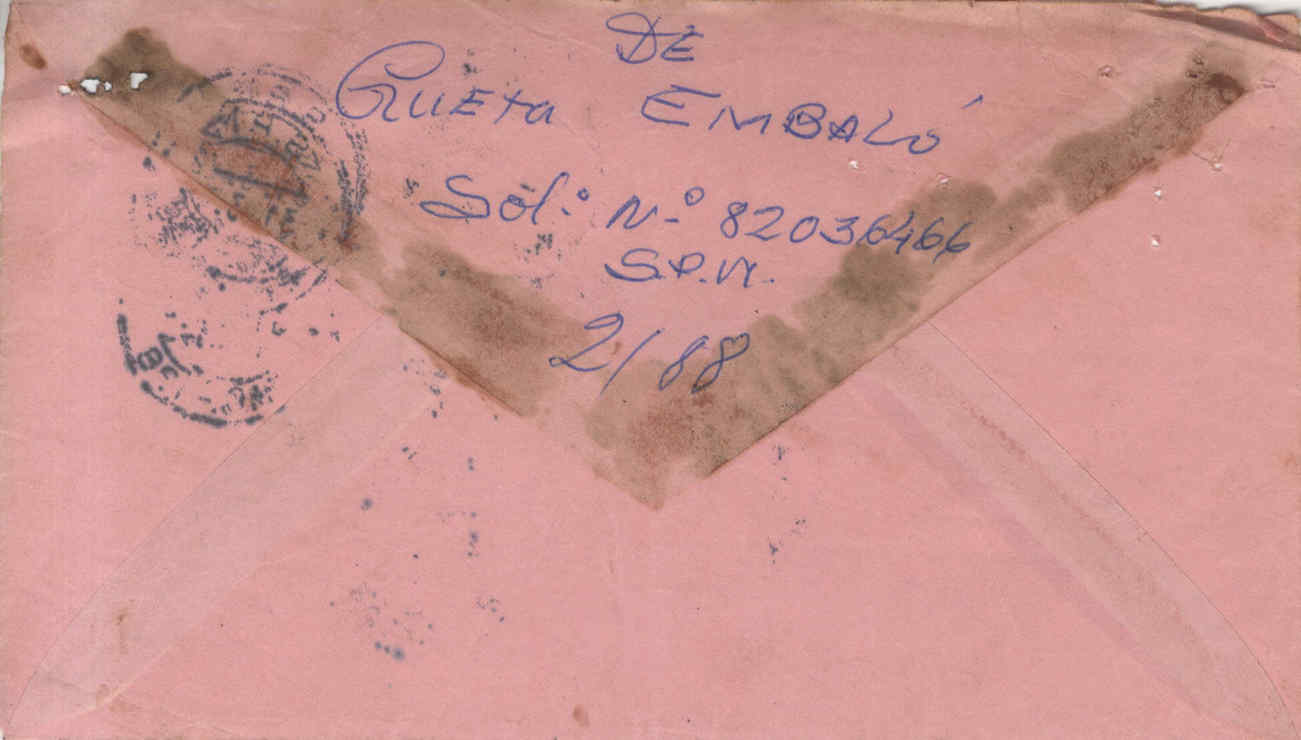 DE
Queta EMBALÓ
Sol.º N.º 82036466
S.P.M.
2/88